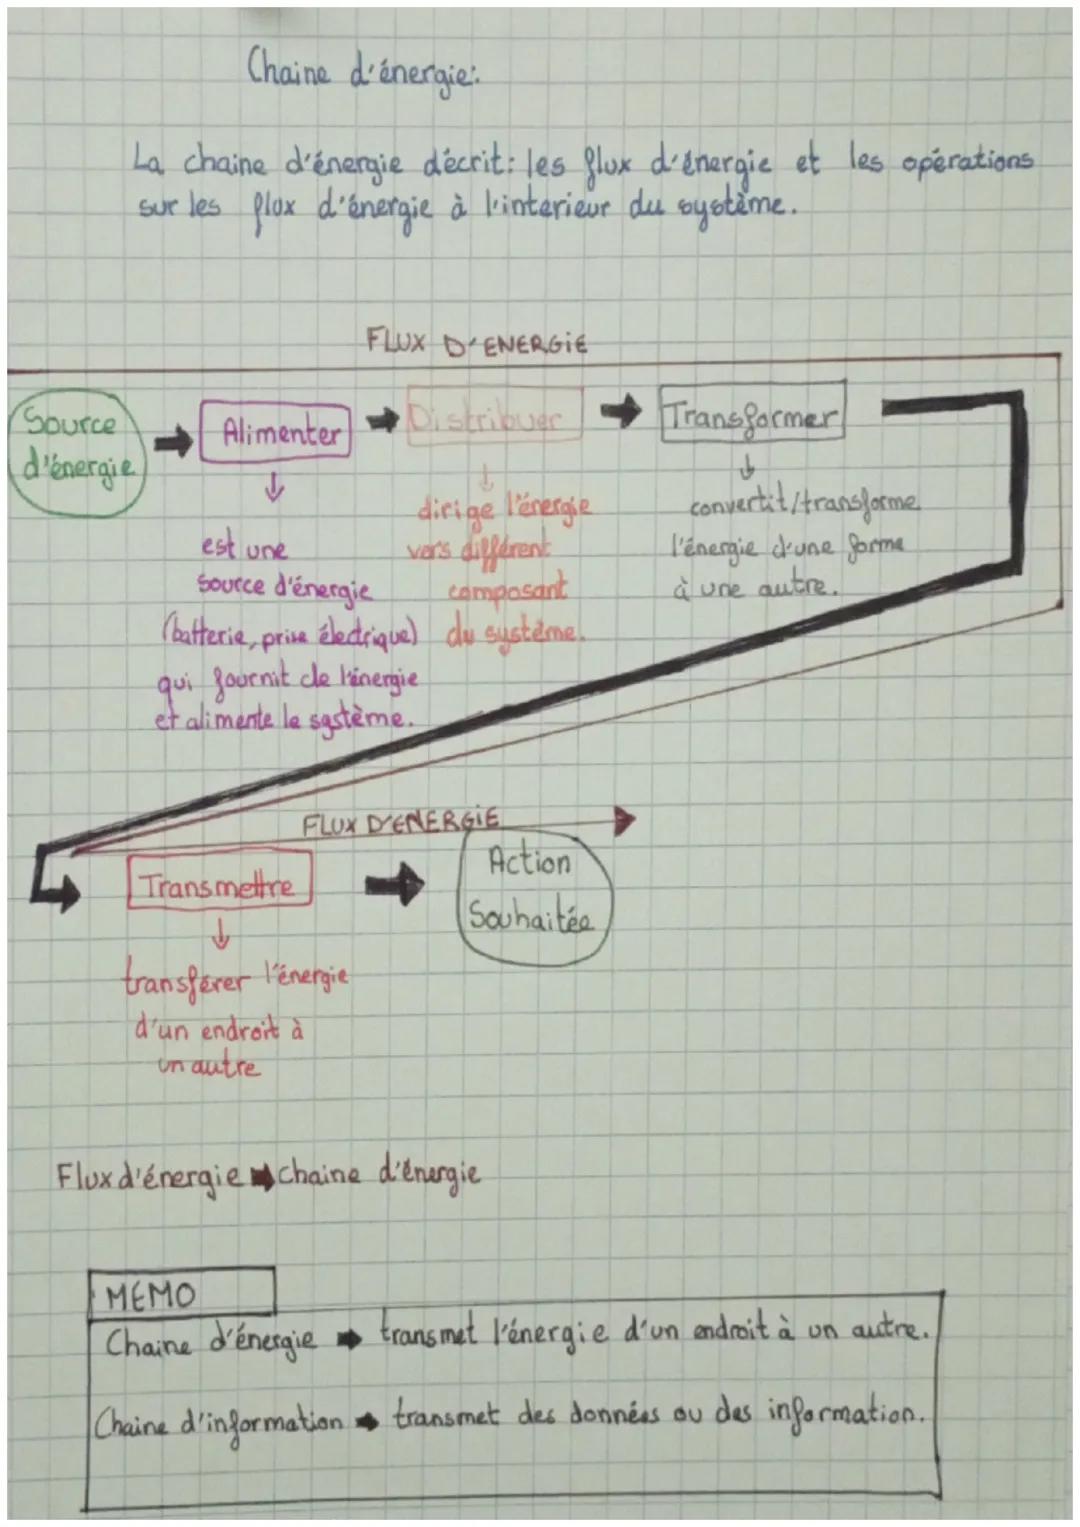 Chaine d'énergie:
La chaine d'énergie décrit: les flux d'énergie et les opérations
sur les flux d'énergie à l'interieur du système.
FLUX D'ENERGiE
Source
d'énergie
Alimenter
Distribuer
Transformer
est une
source d'énergie
(batterie, prise électrique)
qui fournit de l'énergie
et alimente le système.
dirige l'énergie
vers différent
composant
du système.
convertit/transforme
l'énergie d'une forme
à une autre.
FLUX D'ENERGiE
Transmettre
Action
Souhaitée
transférer l'énergie
d'un endroit à
un autre
Flux d'énergie ➡ chaine d'énergie
MEMO
Chaine d'énergie ➡ transmet l'énergie d'un endroit à un autre.
Chaine d'information ➡ transmet des données ou des information.